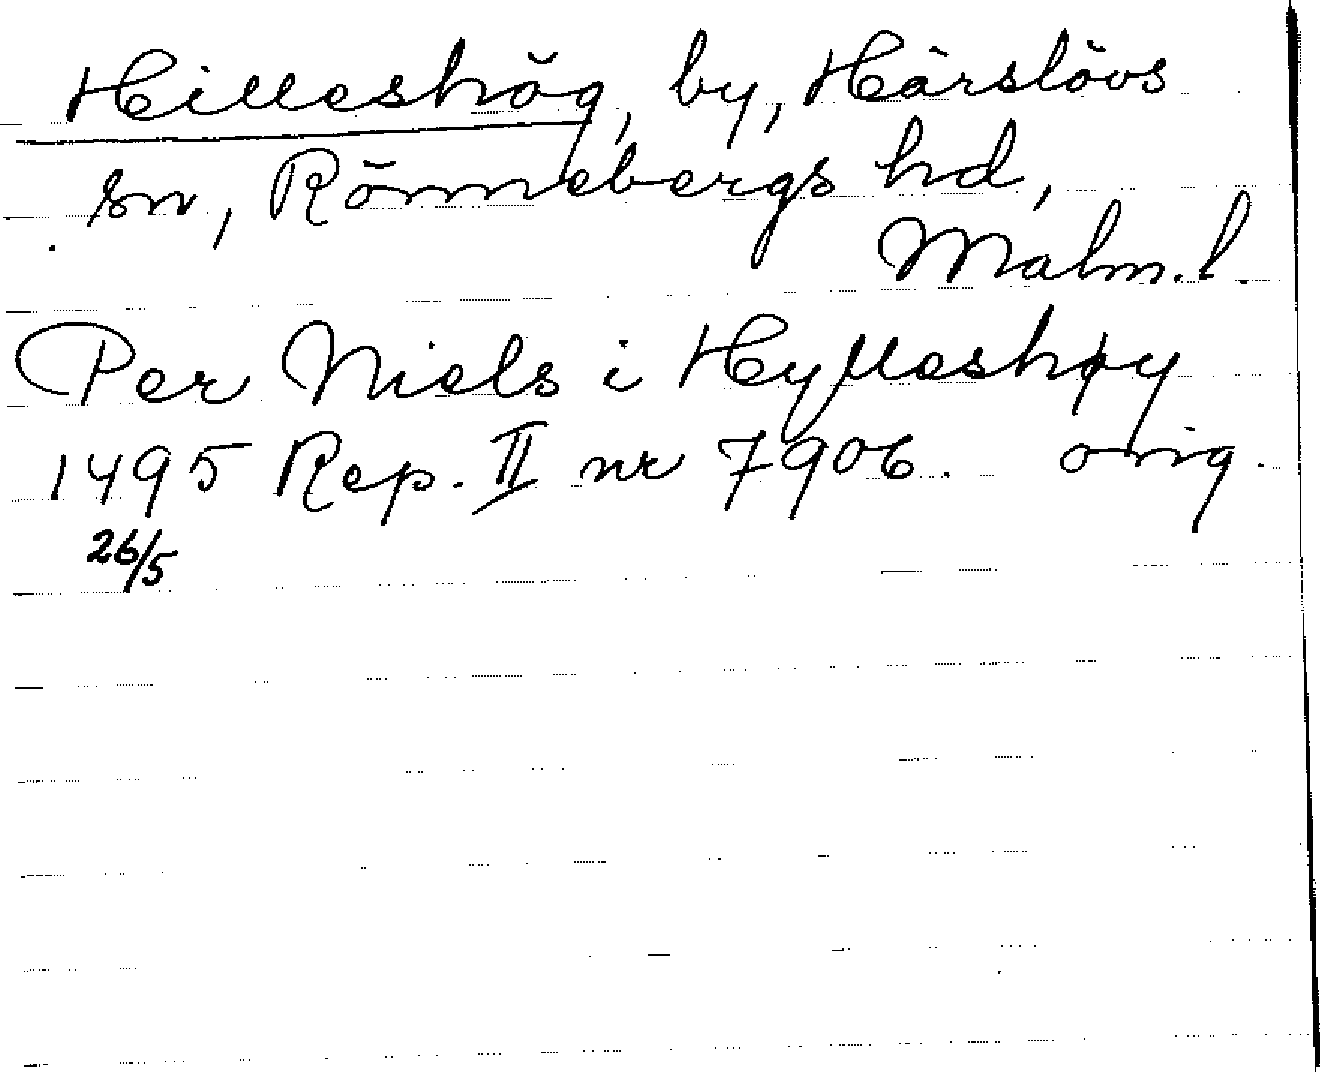 Hilleshög, by, Härslövs
sn, Rönnebergs hd,
Malm. l.
Per Niels i Hylleshøy
1495 Rep. II nr 7906. orig.
26/5